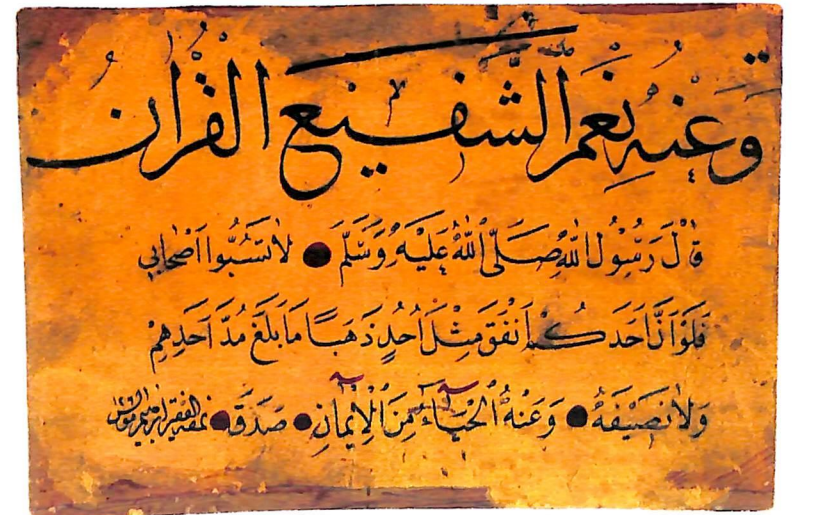 وَعَنْهُ نِعْمَ الشَّفِيعُ الْقُرْاٰنُ
قَالَ رَسُولُ اللّٰهِ صَلَّى اللّٰهُ عَلَيْهِ وَسَلَّمَ ● لَا تَسُبُّوا اَصْحَابِي
فَلَوْ اَنَّ اَحَدَكُمْ اَنْفَقَ مِثْلَ اُحُدٍ ذَهَبًا مَا بَلَغَ مُدَّ اَحَدِهِمْ
وَلَا نَصِيفَهُ ● وَعَنْهُ الْحَيَاءُ مِنَ الْاِيمَانِ ● صَدَقَ ● نمقه الفقير